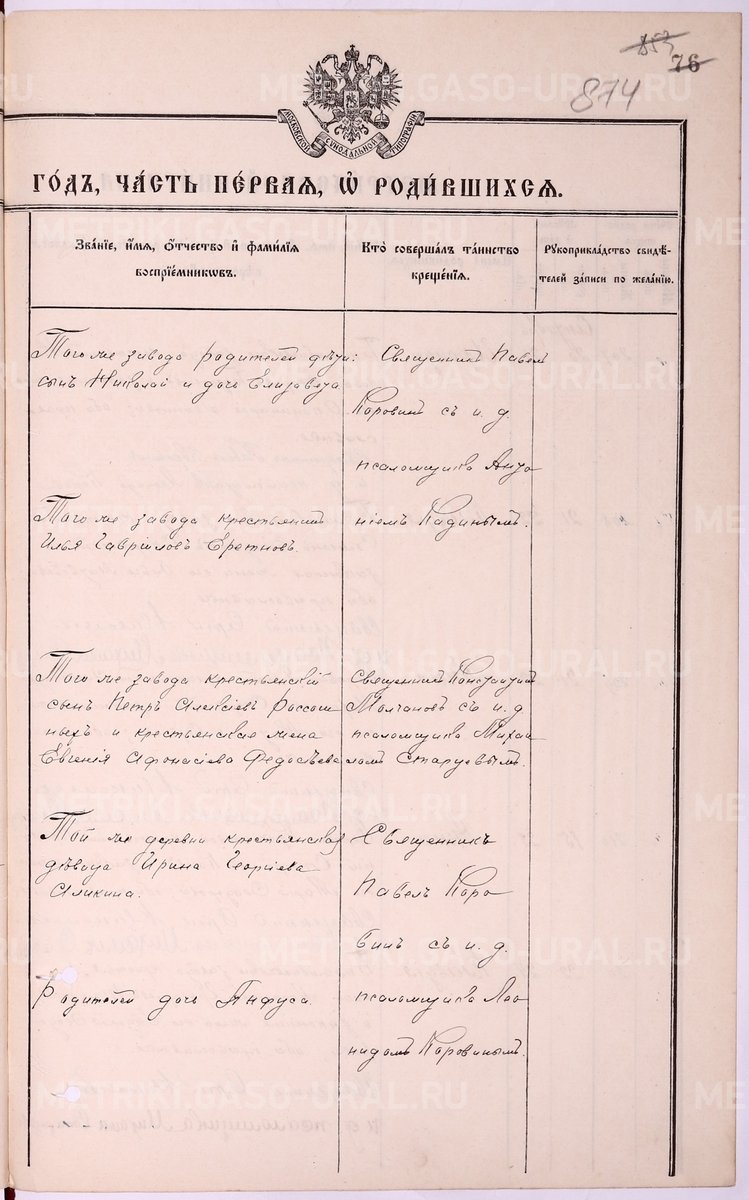 853
76
874
МОСКОВСКОЙ СѴНОДАЛЬНОЙ ТИПОГРАФІИ
ГО́ДЪ, ЧА́СТЬ ПЕ́РВАЯ, Ѡ҆ РОДИ́ВШИХСЯ.
Зва́нїе, и҆́мя, ѻ҆́тчество и҆ фами́лїя
воспрїе́мниковъ.
Кто̀ соверша́лъ та́инство
креще́нїя.
Рукоприкла́дство свидѣ́-
телей за́писи по жела́нїю.
Того же завода родителей дѣти:
сынъ Николай и дочь Елизавета
Священникъ Павелъ
Коровинъ съ и. д.
псаломщика Анто
ніемъ Кадинымъ.
Того же завода крестьянинъ
Илья Гавріиловъ Еретновъ.
Того же завода крестьянскій
сынъ Петръ Алексіевъ Россош
ныхъ и крестьянская жена
Евгенія Афонасіева Федосѣева
Священникъ Константинъ
Молчановъ съ и. д
псаломщика Михаи
ломъ Старцевымъ.
Той же деревни крестьянская
дѣвица Ирина Георгіева
Аликина.
Священникъ
Павелъ Коро
винъ съ и. д.
псаломщика Лео
нидомъ Коровинымъ.
Родителей дочь Анфуса.
METRIKI.GASO-URAL.RU